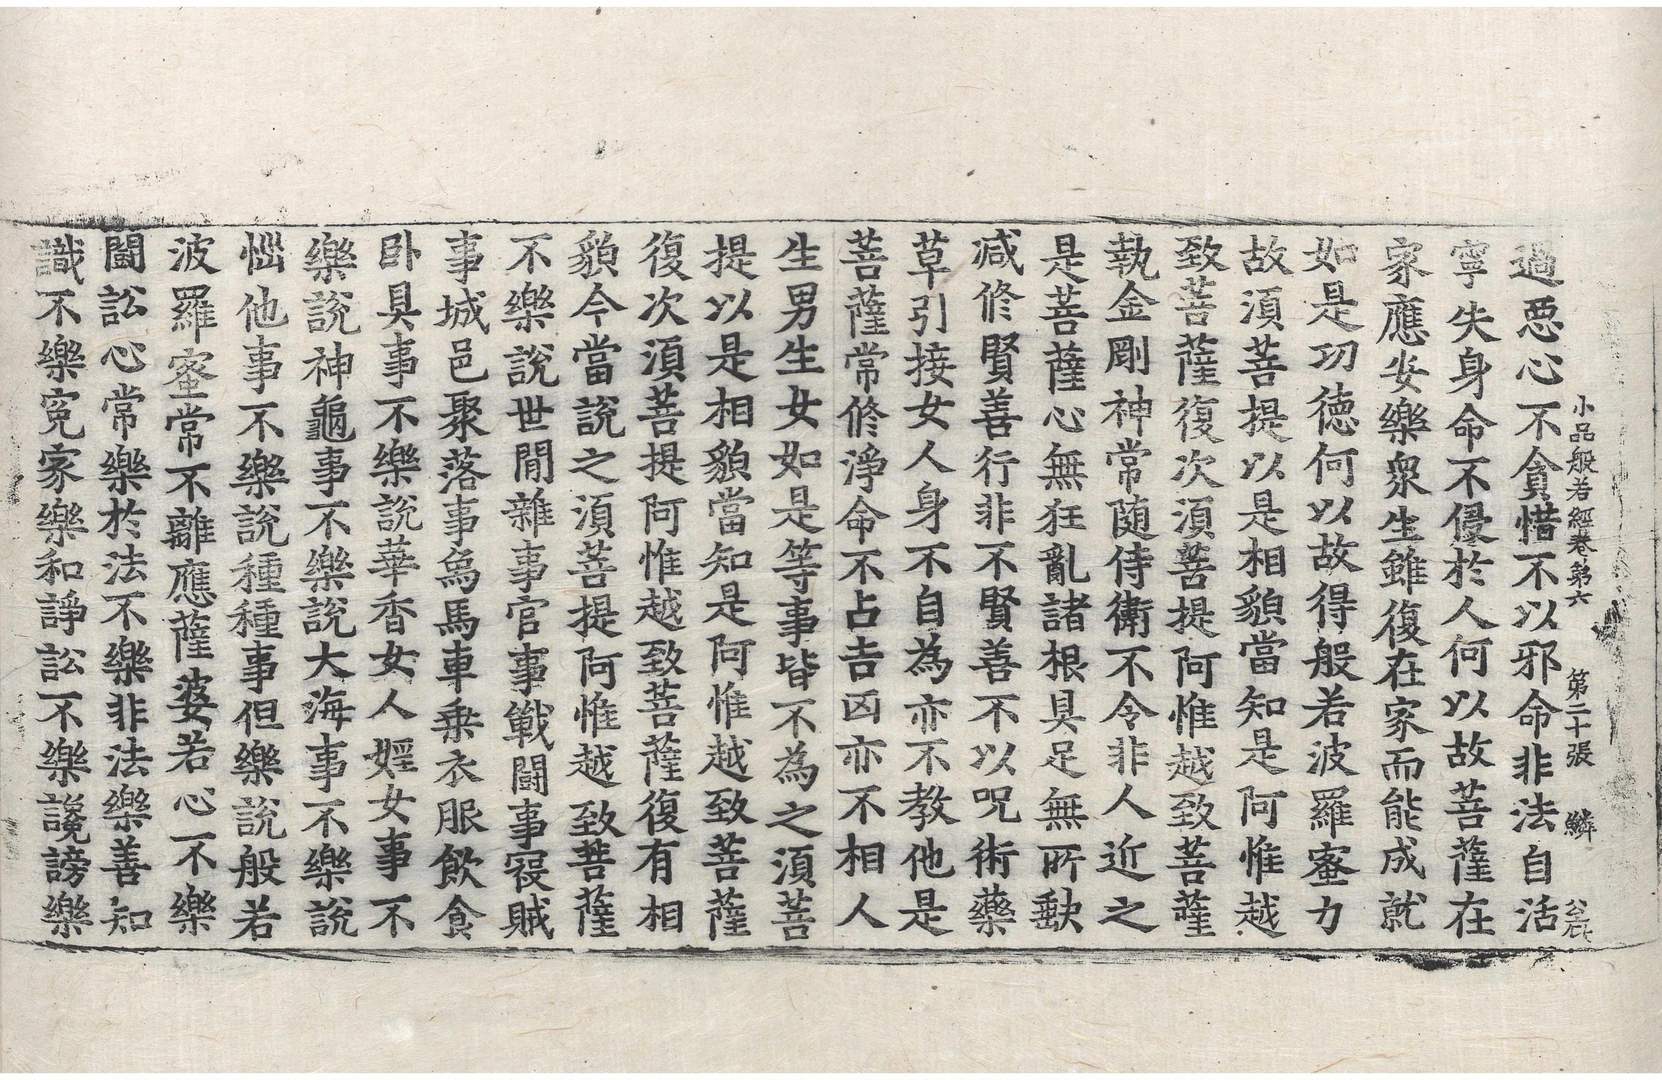 小品般若經卷第六 第二十張 鱗
過惡心不貪惜不以邪命非法自活
寧失身命不侵於人何以故菩薩在
家應安樂衆生雖復在家而能成就
如是功徳何以故得般若波羅蜜力
故湏菩提以是相貌當知是阿惟越
致菩薩復次湏菩提阿惟越致菩薩
執金剛神常随侍衛不令非人近之
是菩薩心無狂亂諸根具足無所缺
减修賢善行非不賢善不以呪術藥
草引接女人身不自為亦不教他是
菩薩常修淨命不占吉凶亦不相人
生男生女如是等事皆不為之湏菩
提以是相貌當知是阿惟越致菩薩
復次湏菩提阿惟越致菩薩復有相
貌今當說之湏菩提阿惟越致菩薩
不樂說世間雜事官事戰鬪事寇賊
事城邑聚落事象馬車乗衣服飲食
卧具事不樂說華香女人婬女事不
樂說神龜事不樂說大海事不樂說
惱他事不樂說種種事但樂說般若
波羅蜜常不離應薩婆若心不樂
鬪訟心常樂於法不樂非法樂善知
識不樂寃家樂和諍訟不樂讒謗樂